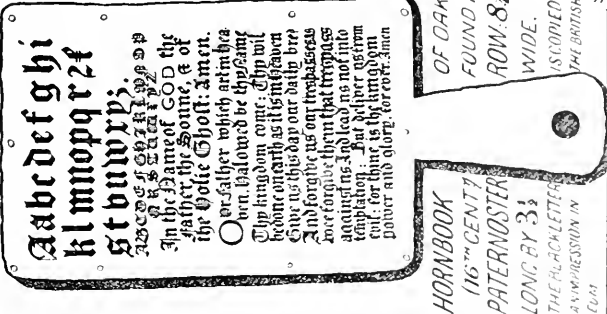 Aabcdefghi
klmnopqrzt
stvuwxyz;
ABCDEFGHIKLMNOP
QRSTUWXYZ
In the Name of GOD the
Father the Sonne, & of
the Holie Ghost: Amen.
Our Father which art in hea
ven, Halowed be thy Name
Thy kingdom come: Thy wil
be done on earth as it is in heaven
Give us this day our daily bre
And forgive us our trespasses as
wee forgive them that trespass
against us And lead us not into
temptation: But deliver us from
evil: for thine is the kingdom
power and glory, for ever: Amen
HORNBOOK
(16TH CENTY
PATERNOSTER
LONG BY 3½
THE BLACK LETTER
AN IMPRESSION IN
OF OAK
FOUND
ROW. 8
WIDE.
IS COPIED
THE BRITISH